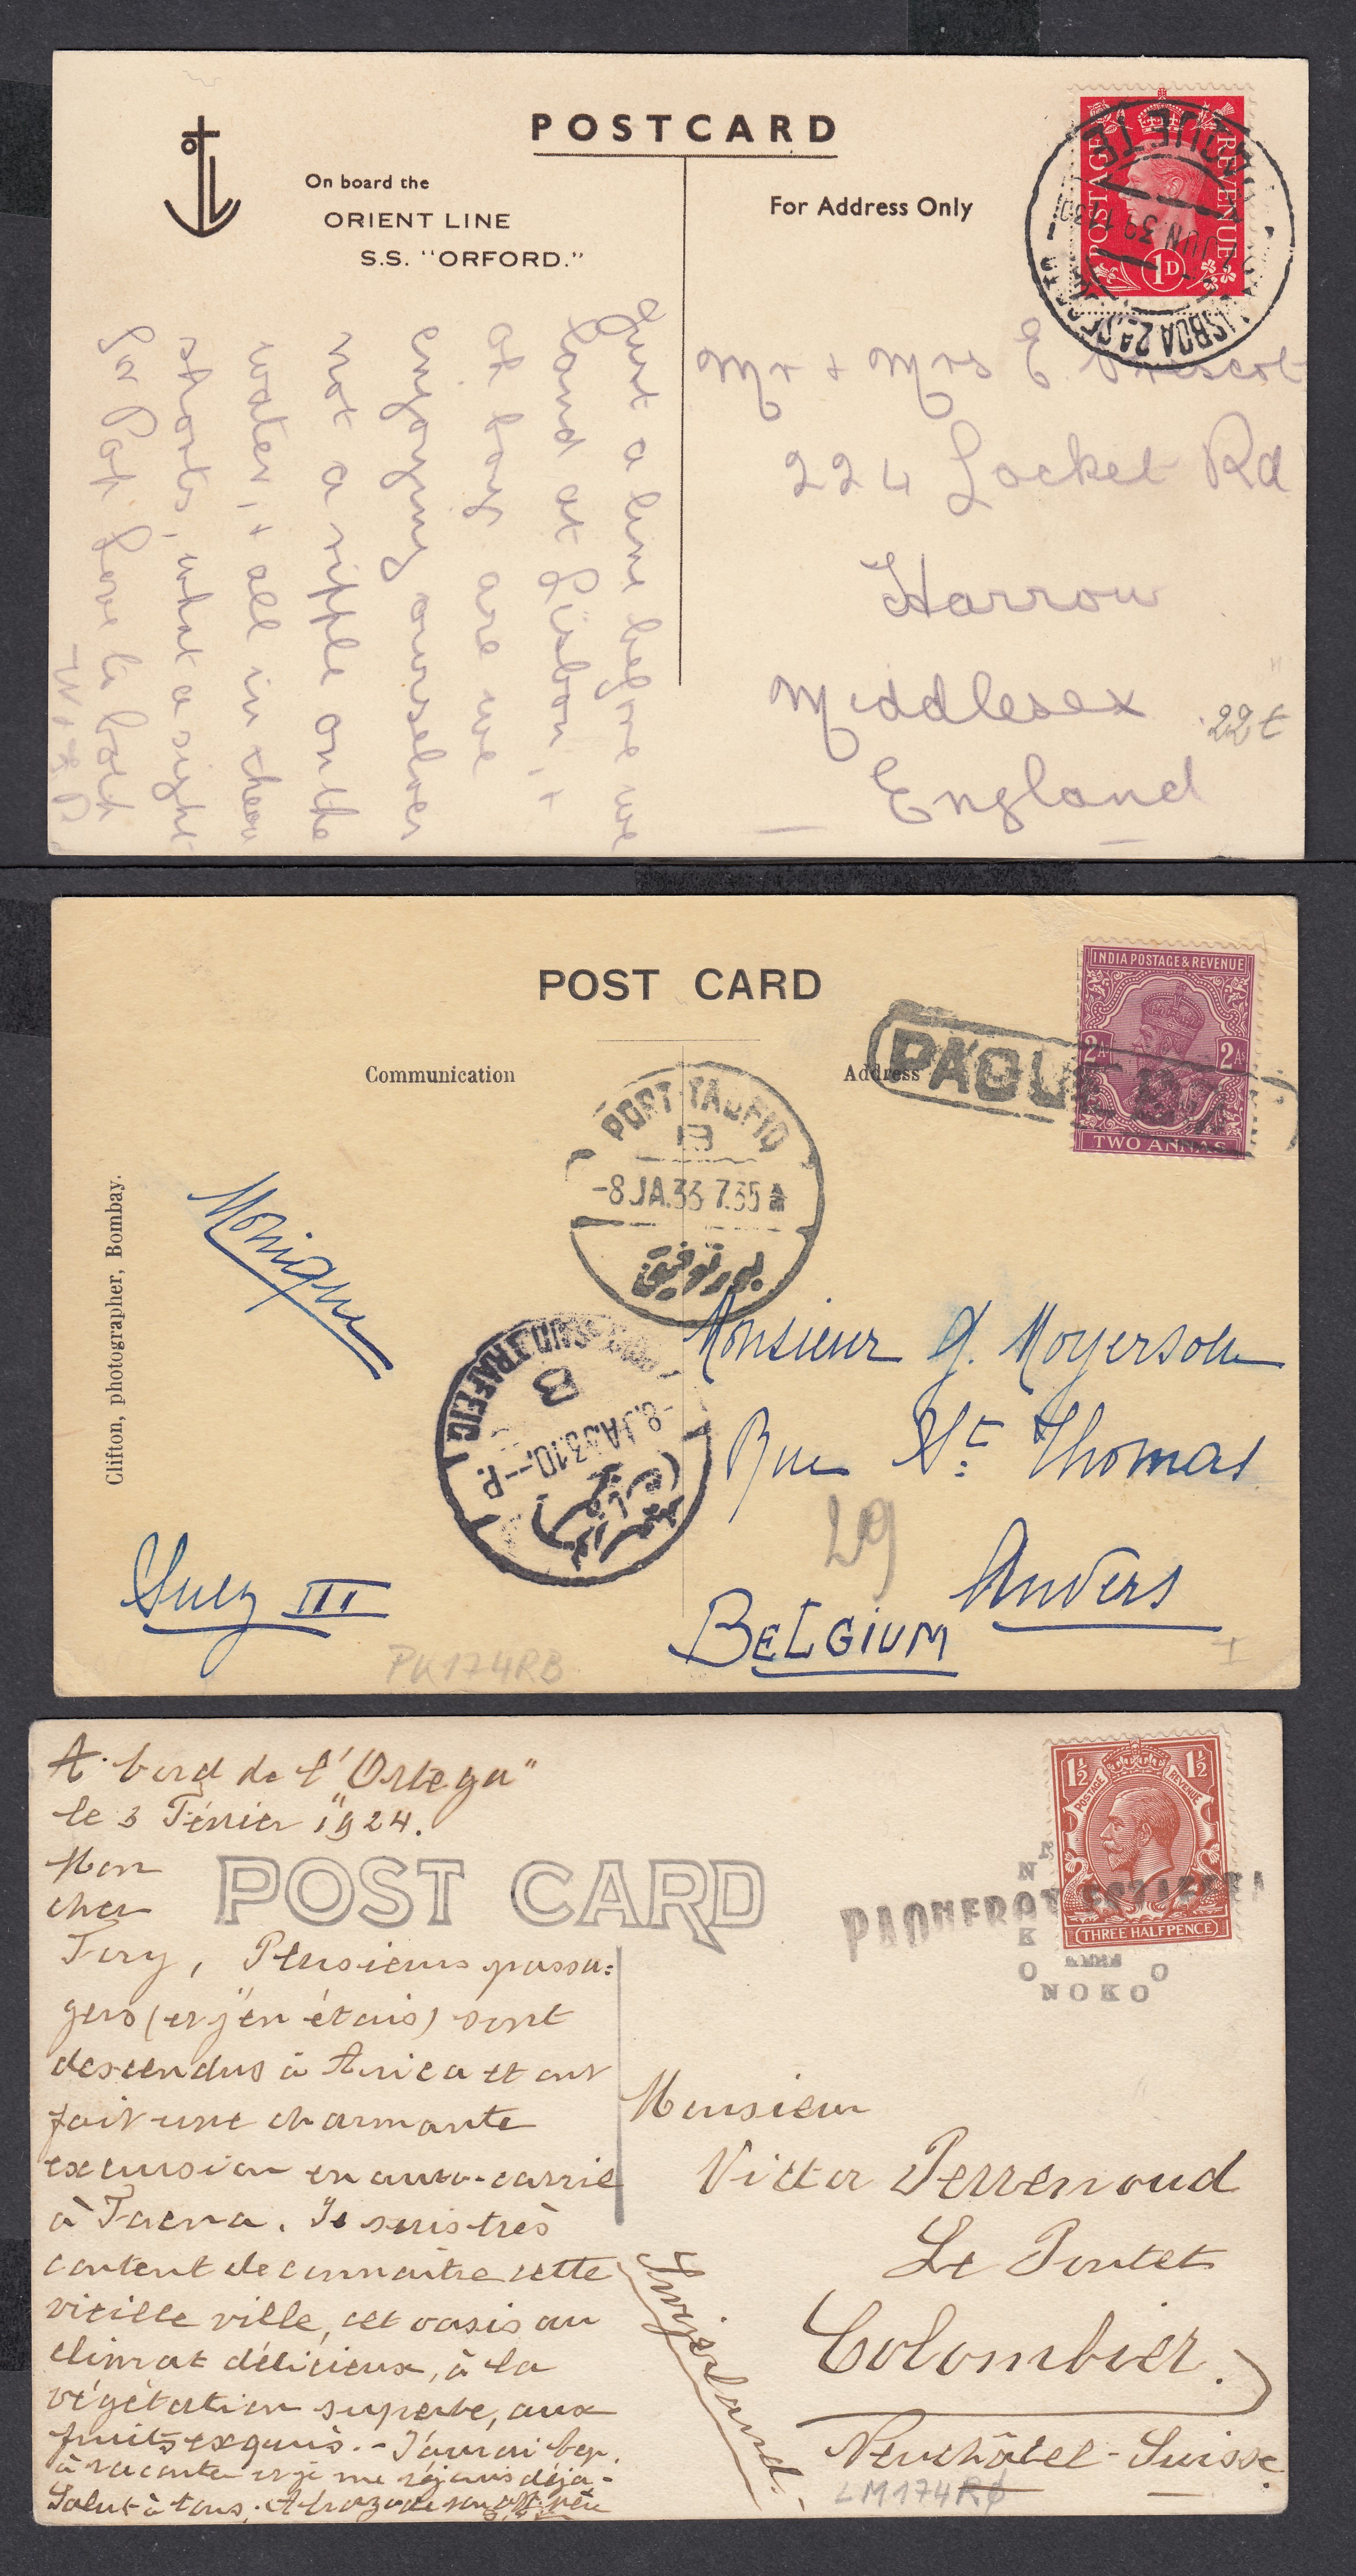 POSTCARD
On board the
ORIENT LINE
S.S. "ORFORD."
For Address Only
POSTAGE
REVENUE
1D
LISBOA 2ª
JUN 39
Just a line before we
land at Lisbon, +
at bay are we
enjoying ourselves
not a ripple on the
water, + all in their
shorts, what a sight
for Pat. Love to both
Mr + Mrs E.
224 Locket Rd
Harrow
Middlesex
England
22t
POST CARD
Communication
Address
INDIA POSTAGE & REVENUE
2As
2As
TWO ANNAS
PAQUEBOT
PORT TAUFIQ
B
-8 JA.33 7.35 AM
بور توفيق
TRAFFIC
B
-8.JA.33.10.-P.
Clifton, photographer, Bombay.
Monique
Suez III
Monsieur G. Moyersoen
Rue St. Thomas
29
Anvers
BELGIUM
PK174RB
A bord de l'"Ortega"
le 3 Février 1924.
Mon
cher
POST CARD
1½
1½
POSTAGE
REVENUE
THREE HALFPENCE
PAQUEBOT
NOKO
Tery, Plusieurs passa=
gers (et j'en étais) sont
descendus à Arica et ont
fait une charmante
excursion en auto-carril
à Tacna. Je suis très
content de connaître cette
vieille ville, cet oasis au
climat délicieux, à la
végétation superbe, aux
fruits exquis. - J'aurai bcp.
à raconter et je me réjouis déjà -
Salut à tous.
Monsieur
Victor Perrenoud
Le Pontet
Colombier.
Neuchâtel - Suisse
Switzerland.
LM174R